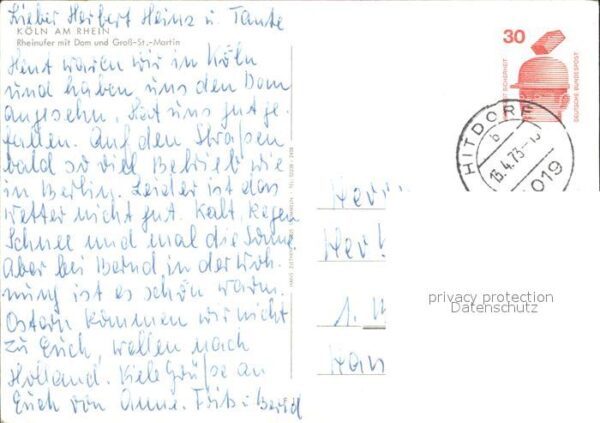 Lieber Herbert Heinz u. Tante
KÖLN AM RHEIN
Rheinufer mit Dom und Groß-St.-Martin
Heut waren wir in Köln
und haben uns den Dom
angesehn. Hat uns gut ge-
fallen. Auf den Straßen
bald so viel Betrieb wie
in Berlin. Leider ist das
Wetter nicht gut. Kalt, Regen
Schnee und mal die Sonne.
Aber bei Bernd in der Woh-
nung ist es schön warm.
Ostern kommen wir nicht
zu Euch, wollen nach
Holland. Viele Grüße an
Euch von Anne. Fritz u Bernd
30
SICHERHEIT
DEUTSCHE BUNDESPOST
HITDORF
b
15.4.73
019
Herr
Her
1.
Han
privacy protection
Datenschutz